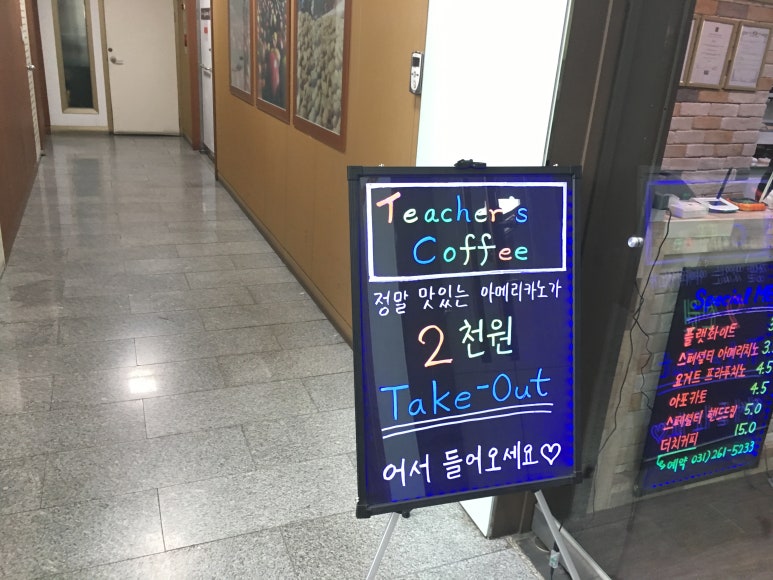 Teacher's
Coffee
정말 맛있는 아메리카노가
2천원
Take-Out
어서 들어오세요♡
Special
플랫화이트
스페셜티 아메리치노 3.
요거트 프라푸치노 4.5
아포카토 4.5
스페셜티 핸드드립 5.0
더치커피 15.0
예약 031)261-5233